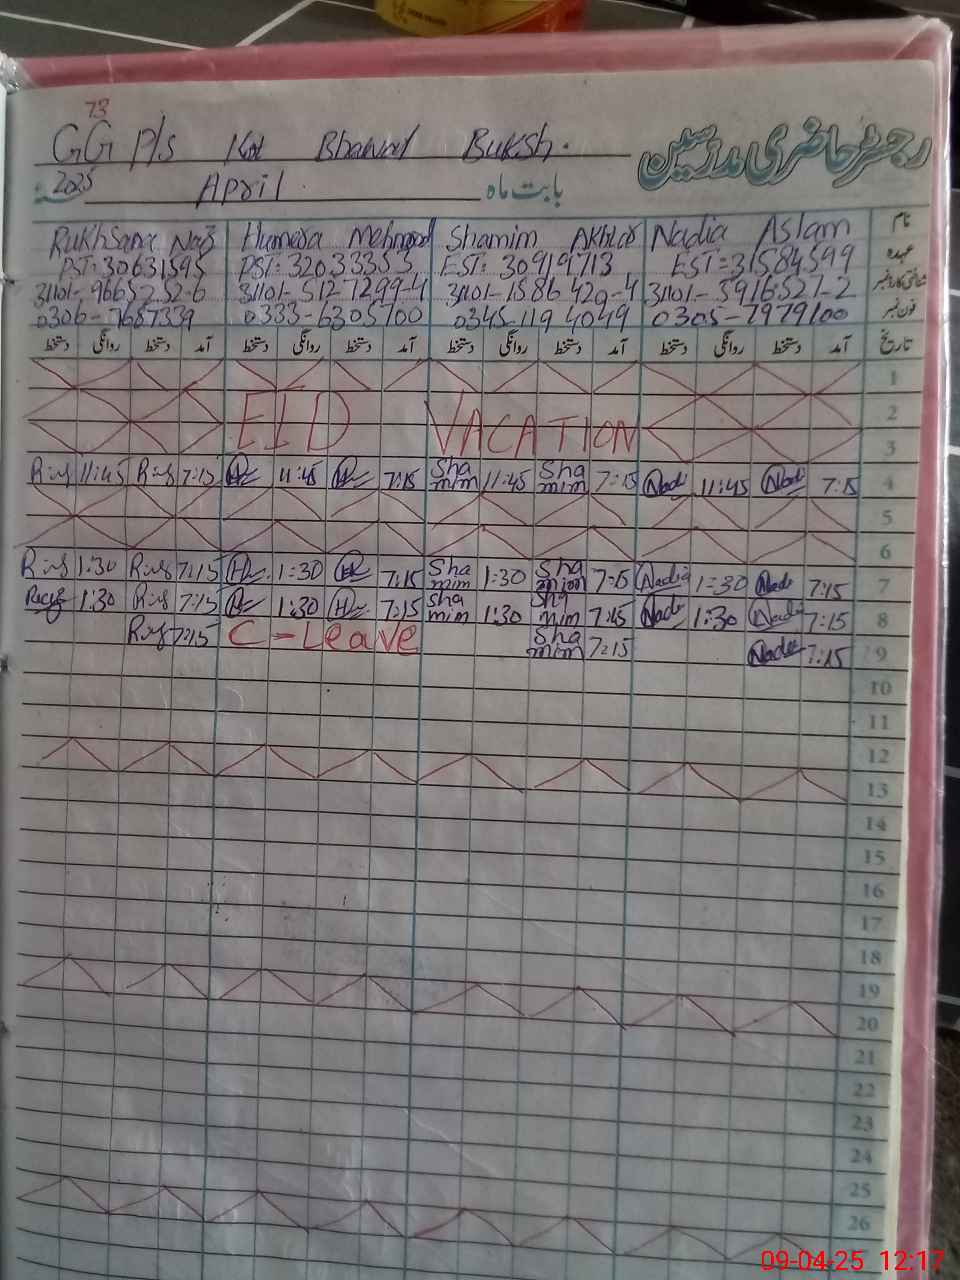 73
GG P/S Kot Bhawal Buksh.
رجسٹر حاضری مدرسین
2025 April بابت ماہ
Rukhsana Naz Humera Mehmood Shamim Akhtar Nadia Aslam نام
PST: 30631595 PST: 32033353 EST: 30919713 EST=31584599 عہدہ
31101-9665252-6 31101-5127299-4 31101-1586420-4 31101-5916521-2 شناختی کارڈ نمبر
0306-7687339 0333-6305700 0345-1194049 0305-7979100 فون نمبر
دستخط روانگی دستخط آمد دستخط روانگی دستخط آمد دستخط روانگی دستخط آمد دستخط روانگی دستخط آمد تاریخ
1
EID VACATION 2
3
11:45 7:15 11:45 7:15 Shamim 11:45 Shamim 7:15 Nadi 11:45 Nadi 7:15 4
5
6
1:30 7:15 1:30 7:15 Shamim 1:30 Shamim 7:15 Nadia 1:30 Nade 7:15 7
1:30 7:15 1:30 7:15 Shamim 1:30 Shamim 7:45 Nade 1:30 Nadia 7:15 8
7:15 C-Leave Shamim 7:15 Nadee 7:15 9
10
11
12
13
14
15
16
17
18
19
20
21
22
23
24
25
26
09-04-25 12:17